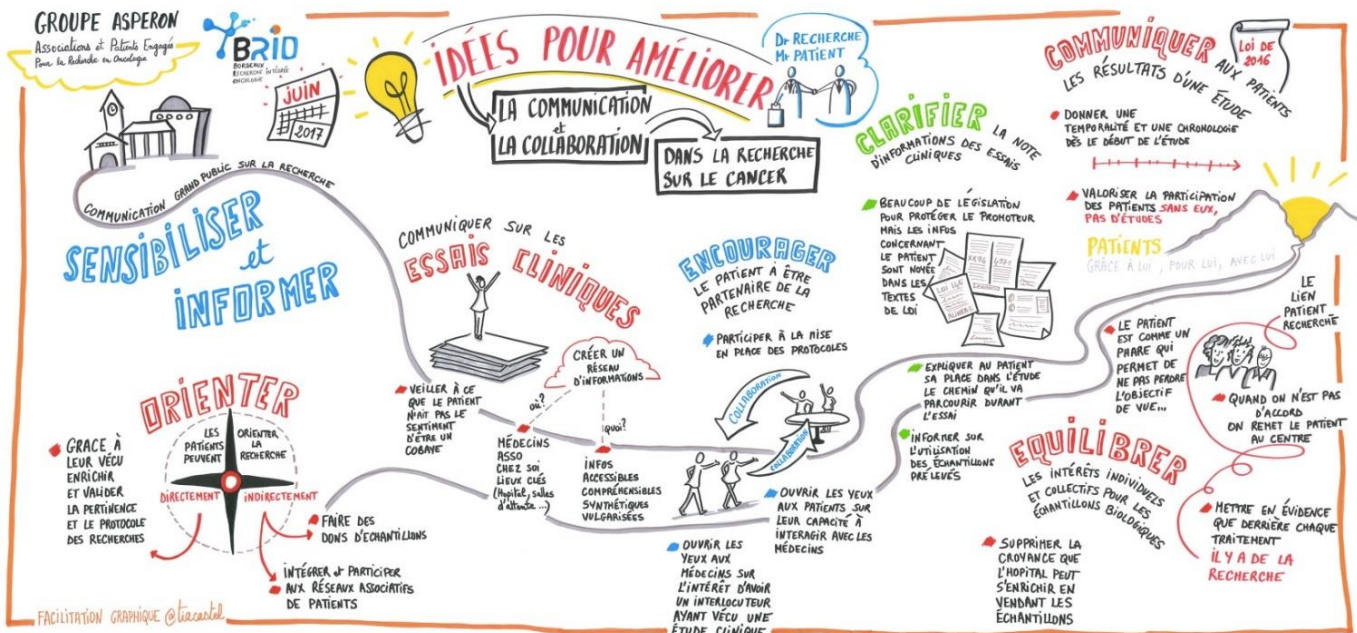 GROUPE ASPERON
Associations et Patients Engagés
Pour la Recherche en Oncologie
BRIO
BORDEAUX
RECHERCHE INTÉGRÉE
ONCOLOGIE
JUIN
2017
IDÉES POUR AMÉLIORER
LA COMMUNICATION
et
LA COLLABORATION
DANS LA RECHERCHE
SUR LE CANCER
Dr RECHERCHE
Mr PATIENT
COMMUNICATION GRAND PUBLIC SUR LA RECHERCHE
SENSIBILISER
et
INFORMER
ORIENTER
LES
PATIENTS
PEUVENT
ORIENTER
LA
RECHERCHE
DIRECTEMENT
INDIRECTEMENT
GRACE À
LEUR VÉCU
ENRICHIR
ET VALIDER
LA PERTINENCE
ET LE PROTOCOLE
DES RECHERCHES
FAIRE DES
DONS D'ECHANTILLONS
INTÉGRER et PARTICIPER
AUX RÉSEAUX ASSOCIATIFS
DE PATIENTS
COMMUNIQUER SUR LES
ESSAIS CLINIQUES
VEILLER À CE
QUE LE PATIENT
N'AIT PAS LE
SENTIMENT
D'ÊTRE UN
COBAYE
CRÉER UN
RÉSEAU
D'INFORMATIONS
où?
quoi?
MÉDECINS
ASSO
CHEZ SOI
LIEUX CLÉS
(Hopital, salles
d'attente...)
INFOS
ACCESSIBLES
COMPRÉHENSIBLES
SYNTHÉTIQUES
VULGARISÉES
ENCOURAGER
LE PATIENT À ÊTRE
PARTENAIRE DE LA
RECHERCHE
PARTICIPER À LA MISE
EN PLACE DES PROTOCOLES
COLLABORATION
COLLABORATION
OUVRIR LES YEUX
AUX PATIENTS SUR
LEUR CAPACITÉ À
INTERAGIR AVEC LES
MÉDECINS
OUVRIR LES
YEUX AUX
MÉDECINS SUR
L'INTÉRÊT D'AVOIR
UN INTERLOCUTEUR
AYANT VÉCU UNE
ÉTUDE CLINIQUE
CLARIFIER LA NOTE
D'INFORMATIONS DES ESSAIS
CLINIQUES
BEAUCOUP DE LÉGISLATION
POUR PROTÉGER LE PROMOTEUR
MAIS LES INFOS
CONCERNANT
LE PATIENT
SONT NOYÉE
DANS LES
TEXTES
DE LOI
EXPLIQUER AU PATIENT
SA PLACE DANS L'ÉTUDE
LE CHEMIN QU'IL VA
PARCOURIR DURANT
L'ESSAI
INFORMER SUR
L'UTILISATION
DES ÉCHANTILLONS
PRÉLEVÉS
COMMUNIQUER
LES RÉSULTATS D'UNE ÉTUDE
AUX PATIENTS
LOI DE
2016
DONNER UNE
TEMPORALITÉ ET UNE CHRONOLOGIE
DÈS LE DÉBUT DE L'ÉTUDE
VALORISER LA PARTICIPATION
DES PATIENTS SANS EUX,
PAS D'ÉTUDES
PATIENTS
GRÂCE À LUI, POUR LUI, AVEC LUI
LE PATIENT
EST COMME UN
PHARE QUI
PERMET DE
NE PAS PERDRE
L'OBJECTIF
DE VUE...
LE
LIEN
PATIENT
RECHERCHE
QUAND ON N'EST PAS
D'ACCORD
ON REMET LE PATIENT
AU CENTRE
METTRE EN ÉVIDENCE
QUE DERRIÈRE CHAQUE
TRAITEMENT
IL Y A DE LA
RECHERCHE
EQUILIBRER
LES INTÉRÊTS INDIVIDUELS
ET COLLECTIFS POUR LES
ÉCHANTILLONS BIOLOGIQUES
SUPPRIMER LA
CROYANCE QUE
L'HOPITAL PEUT
S'ENRICHIR EN
VENDANT LES
ÉCHANTILLONS
FACILITATION GRAPHIQUE @tiacastel